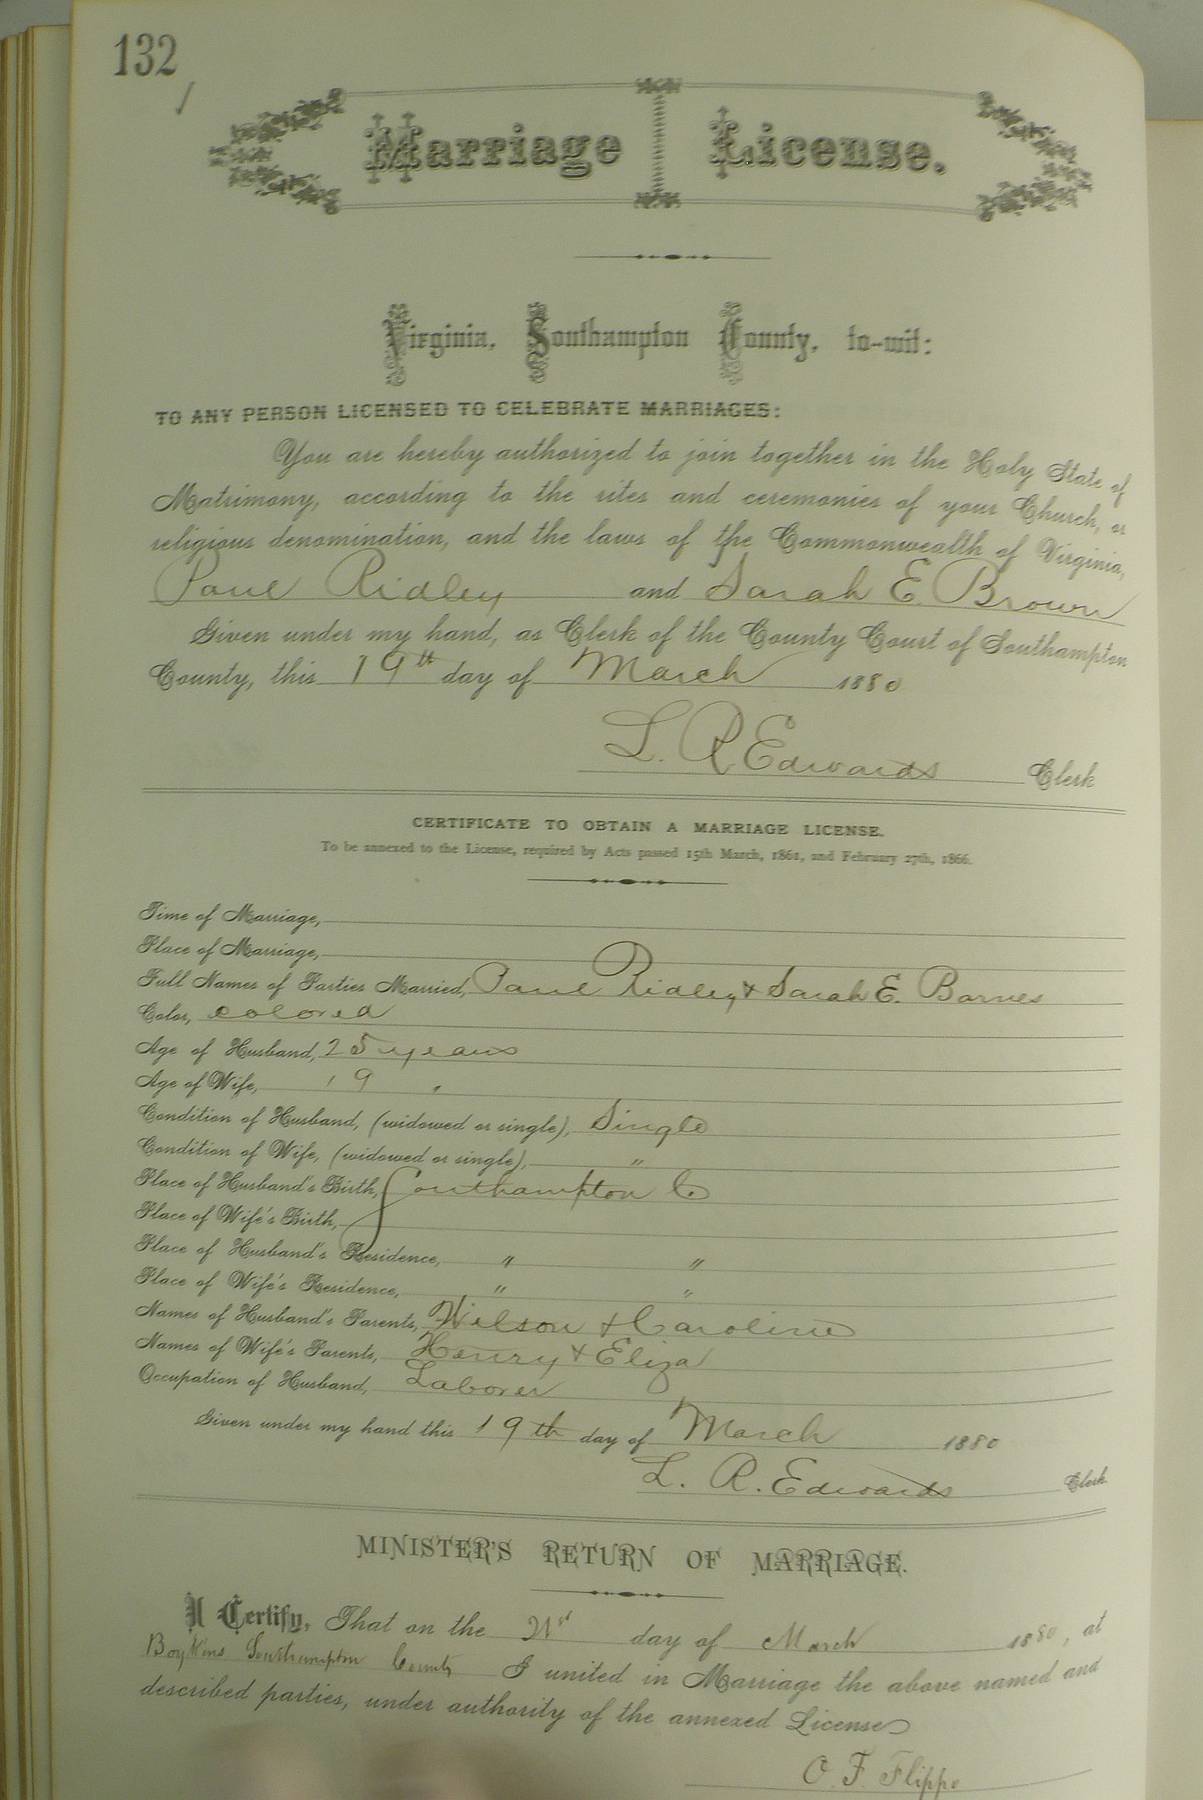 132
Marriage License.
Virginia, Southampton County, to-wit:
TO ANY PERSON LICENSED TO CELEBRATE MARRIAGES:
You are hereby authorized to join together in the Holy State of
Matrimony, according to the rites and ceremonies of your Church, or
religious denomination, and the laws of the Commonwealth of Virginia,
Paul Ridley and Sarah E. Brown
Given under my hand, as Clerk of the County Court of Southampton
County, this 19th day of March 1880
L. R Edwards Clerk
CERTIFICATE TO OBTAIN A MARRIAGE LICENSE.
To be annexed to the License, required by Acts passed 15th March, 1861, and February 27th, 1866.
Time of Marriage,
Place of Marriage,
Full Names of Parties Married, Paul Ridley & Sarah E. Barnes
Color, colored
Age of Husband, 25 years
Age of Wife, 19 "
Condition of Husband, (widowed or single), Single
Condition of Wife, (widowed or single), "
Place of Husband's Birth, Southampton Co
Place of Wife's Birth,
Place of Husband's Residence, " "
Place of Wife's Residence, " "
Names of Husband's Parents, Wilson & Caroline
Names of Wife's Parents, Henry & Eliza
Occupation of Husband, Laborer
Given under my hand this 19th day of March 1880
L. R. Edwards Clerk.
MINISTER'S RETURN OF MARRIAGE.
I Certify, That on the 21st day of March 1880, at
Boykins Southampton County I united in Marriage the above named and
described parties, under authority of the annexed License
O. F. Flippo